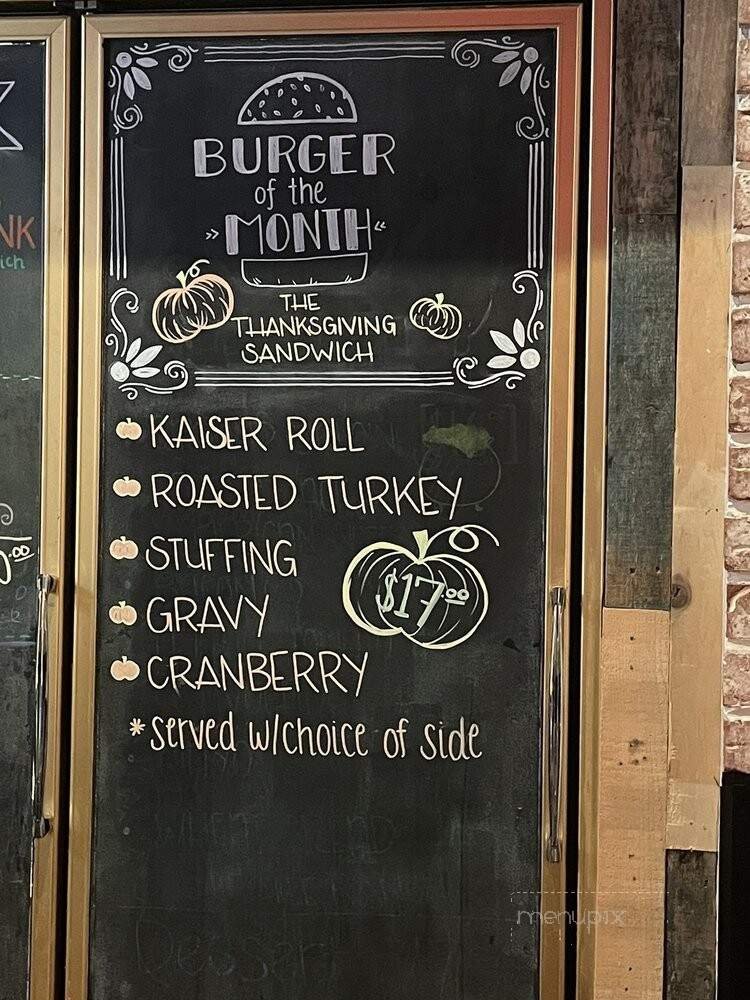 BURGER
of the
» MONTH «
THE
THANKSGIVING
SANDWICH
KAISER ROLL
ROASTED TURKEY
STUFFING
$17.00
GRAVY
CRANBERRY
*served w/choice of side
Dessert
NK
ich
.00
menupix